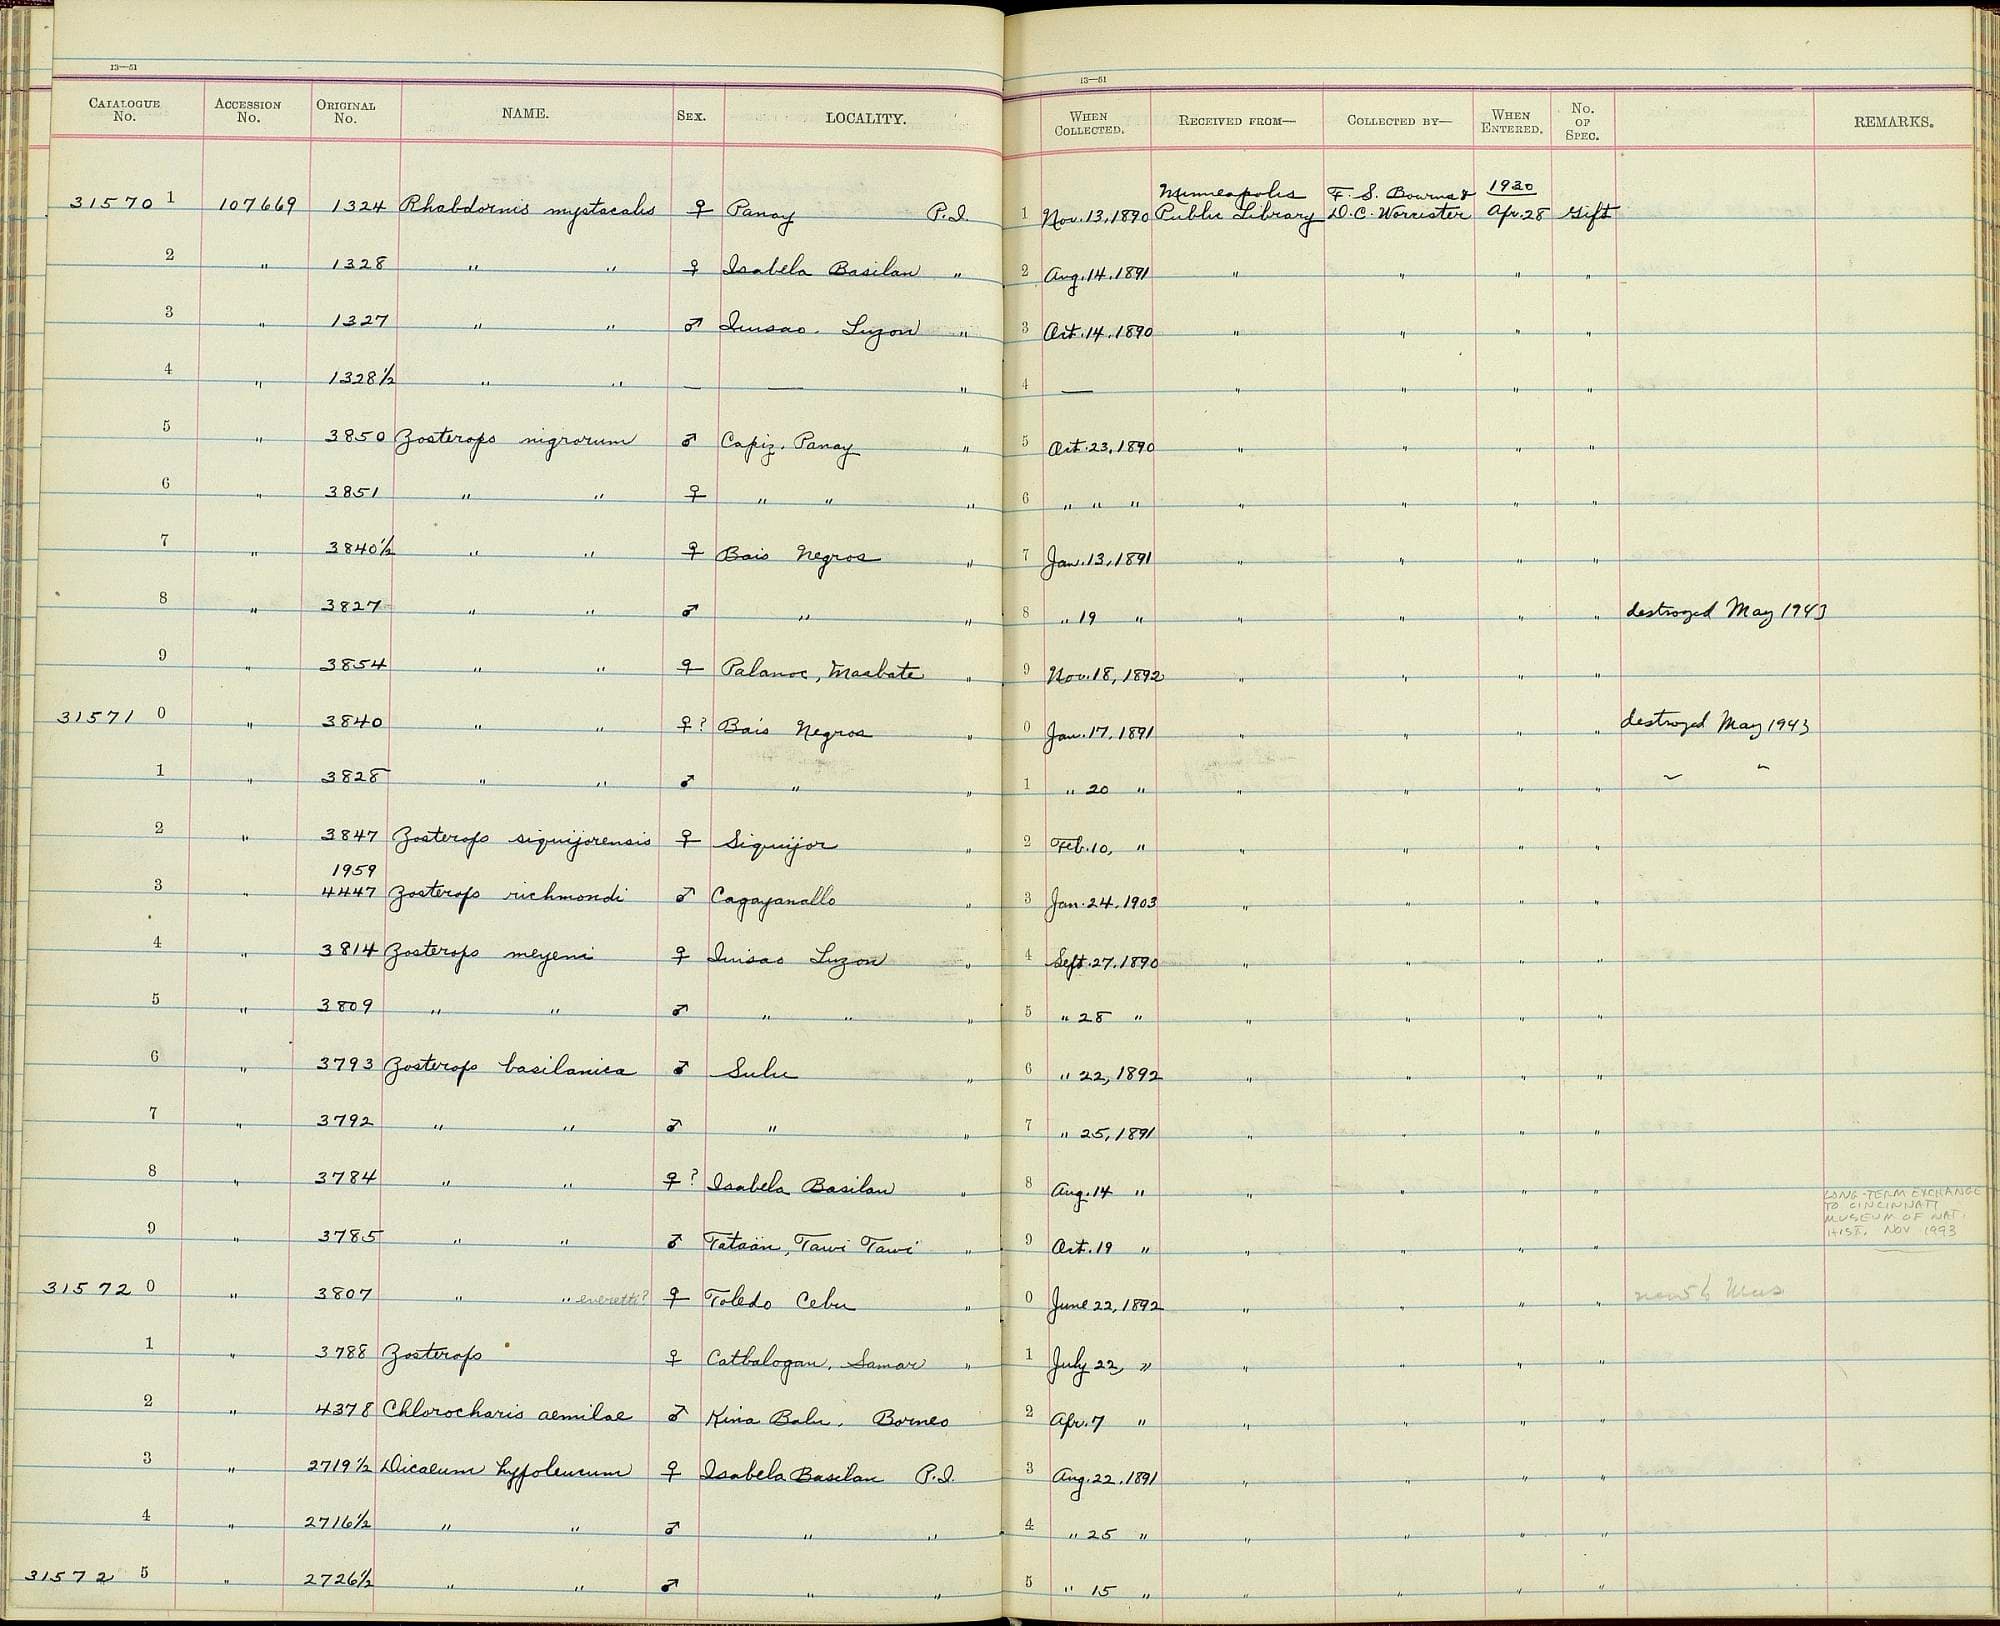 13—51
13—51
CATALOGUE No. ACCESSION No. ORIGINAL No. NAME. SEX. LOCALITY. WHEN COLLECTED. RECEIVED FROM— COLLECTED BY— WHEN ENTERED. No. OF SPEC. REMARKS.
31570 1 107669 1324 Rhabdornis mystacalis ♀ Panay P.I. 1 Nov. 13, 1890 Minneapolis Public Library F. S. Bourns & D. C. Worcester 1930 Apr. 28 Gift
2 " 1328 " " ♀ Isabela Basilan " 2 Aug. 14, 1891 " " " "
3 " 1327 " " ♂ Luzon " 3 Oct. 14, 1890 " " " "
4 " 1328½ " " — — " 4 — " " " "
5 " 3850 Zosterops nigrorum ♂ Capiz, Panay " 5 Oct. 23, 1890 " " " "
6 " 3851 " " ♀ " " " 6 " " " " " " "
7 " 3840½ " " ♀ Bais Negros " 7 Jan. 13, 1891 " " " "
8 " 3827 " " ♂ " " 8 " 19 " " " " " destroyed May 1943
9 " 3854 " " ♀ Palanoc, Masbate " 9 Nov. 18, 1892 " " " "
31571 0 " 3840 " " ♀? Bais Negros " 0 Jan. 17, 1891 " " " " destroyed May 1943
1 " 3828 " " ♂ " " 1 " 20 " " " " " " "
2 " 3847 Zosterops siquijorensis ♀ Siquijor " 2 Feb. 10, " " " " "
1959
3 " 4447 Zosterops richmondi ♂ Cagayanallo " 3 Jan. 24, 1903 " " " "
4 " 3814 Zosterops meyeni ♀ Luzon " 4 Sept. 27, 1890 " " " "
5 " 3809 " " ♂ " " " 5 " 28 " " " " "
6 " 3793 Zosterops basilanica ♂ Sulu " 6 " 22, 1892 " " " "
7 " 3792 " " ♂ " " 7 " 25, 1891 " " " "
8 " 3784 " " ♀? Isabela Basilan " 8 Aug. 14 " " " " "
9 " 3785 " " ♂ Tataan, Tawi Tawi " 9 Oct. 19 " " " " " LONG-TERM EXCHANGE TO CINCINNATI MUSEUM OF NAT. HIST. NOV 1993
31572 0 " 3807 " " everetti? ♀ Toledo Cebu " 0 June 22, 1892 " " " " Mus
1 " 3788 Zosterops ♀ Catbalogan, Samar " 1 July 22, " " " " "
2 " 4378 Chlorocharis aemilae ♂ Kina Balu, Borneo 2 Apr. 7 " " " " "
3 " 2719½ Dicaeum hypoleucum ♀ Isabela Basilan P.I. 3 Aug. 22, 1891 " " " "
4 " 2716½ " " ♂ " " 4 " 25 " " " " "
31572 5 " 2726½ " " ♂ " " 5 " 15 " " " " "